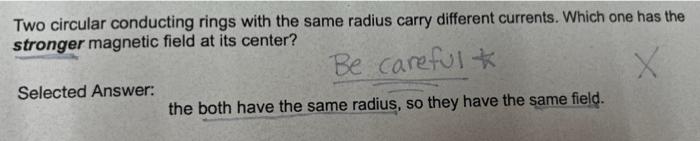 Two circular conducting rings with the same radius carry different currents. Which one has the
stronger magnetic field at its center?
Be careful *
X
Selected Answer:
the both have the same radius, so they have the same field.